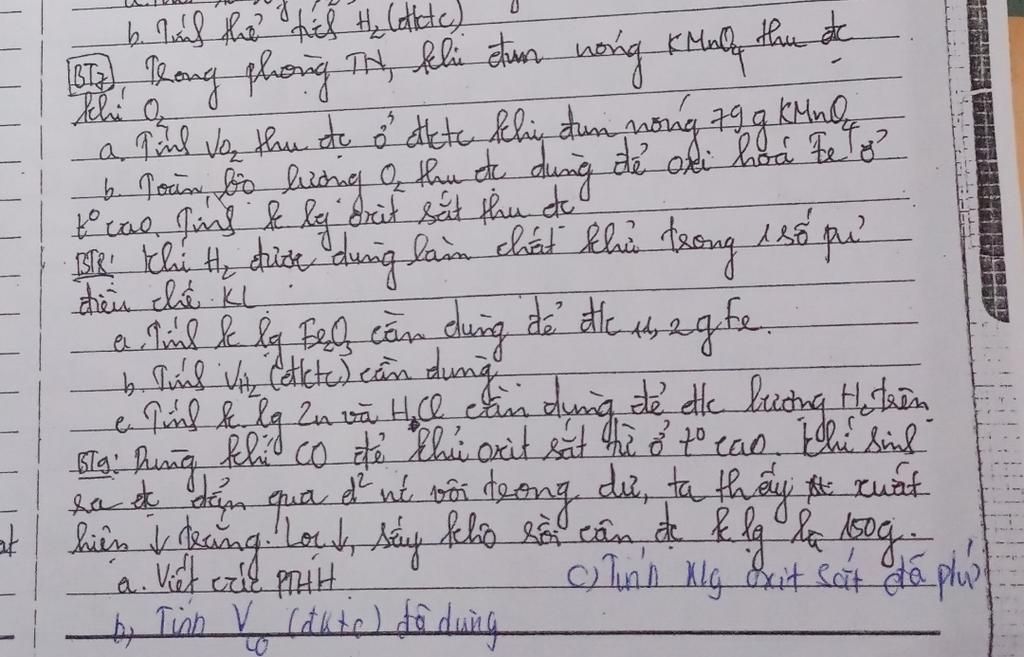 b. Tính thể tích H₂ (đktc)
BT7, Trong phòng TN, khi đun nóng KMnO₄ thu đc
khí O₂
a. Tính VO₂ thu đc ở đktc khi đun nóng 79 g KMnO₄
b. Toàn bộ lượng O₂ thu đc dùng để oxi hoá Fe ở
t° cao. Tính k lg oxit sắt thu đc
BT8: Khí H₂ được dùng làm chất khử trong 1 số pư
điều chế KL
a. Tính k lg Fe₂O₃ cần dùng để đc 11,2 g Fe.
b. Tính VH₂ (đktc) cần dùng
c. Tính k lg Zn và HCl cần dùng để đc lượng H₂ trên
BT9: Dùng khí CO để khử oxit sắt từ ở t° cao. Khí sinh
ra đc dẫn qua d² nc vôi trong dư, ta thấy xuất
hiện ↓ trắng. Lọc ↓, sấy khô rồi cân đc k lg là 150g.
a. Viết các PTHH c) Tính Klg oxit sắt đã phứ
b, Tính VCO (đktc) đã dùng